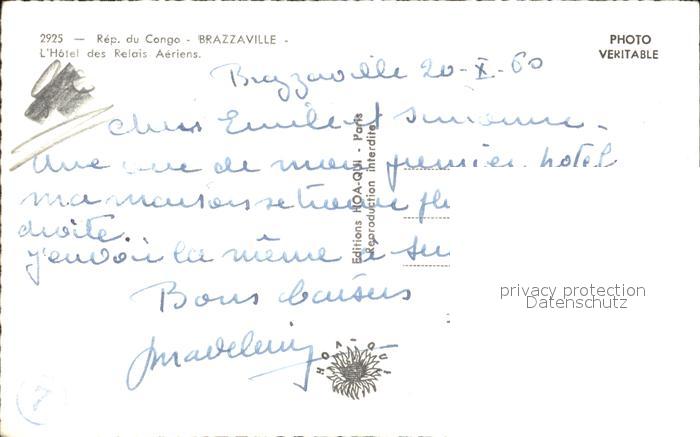 2925 — Rép. du Congo - BRAZZAVILLE -
L'Hôtel des Relais Aériens.
PHOTO
VERITABLE
Brazzaville 20-X-60
Chers Emile et Simonne.
Une vue de mon premier hotel
ma maison se trouve
droite.
j'envoie la même à
Bons baisers
Madeleine
Editions HOA-QUI - Paris
Reproduction interdite
HOA-QUI
privacy protection
Datenschutz